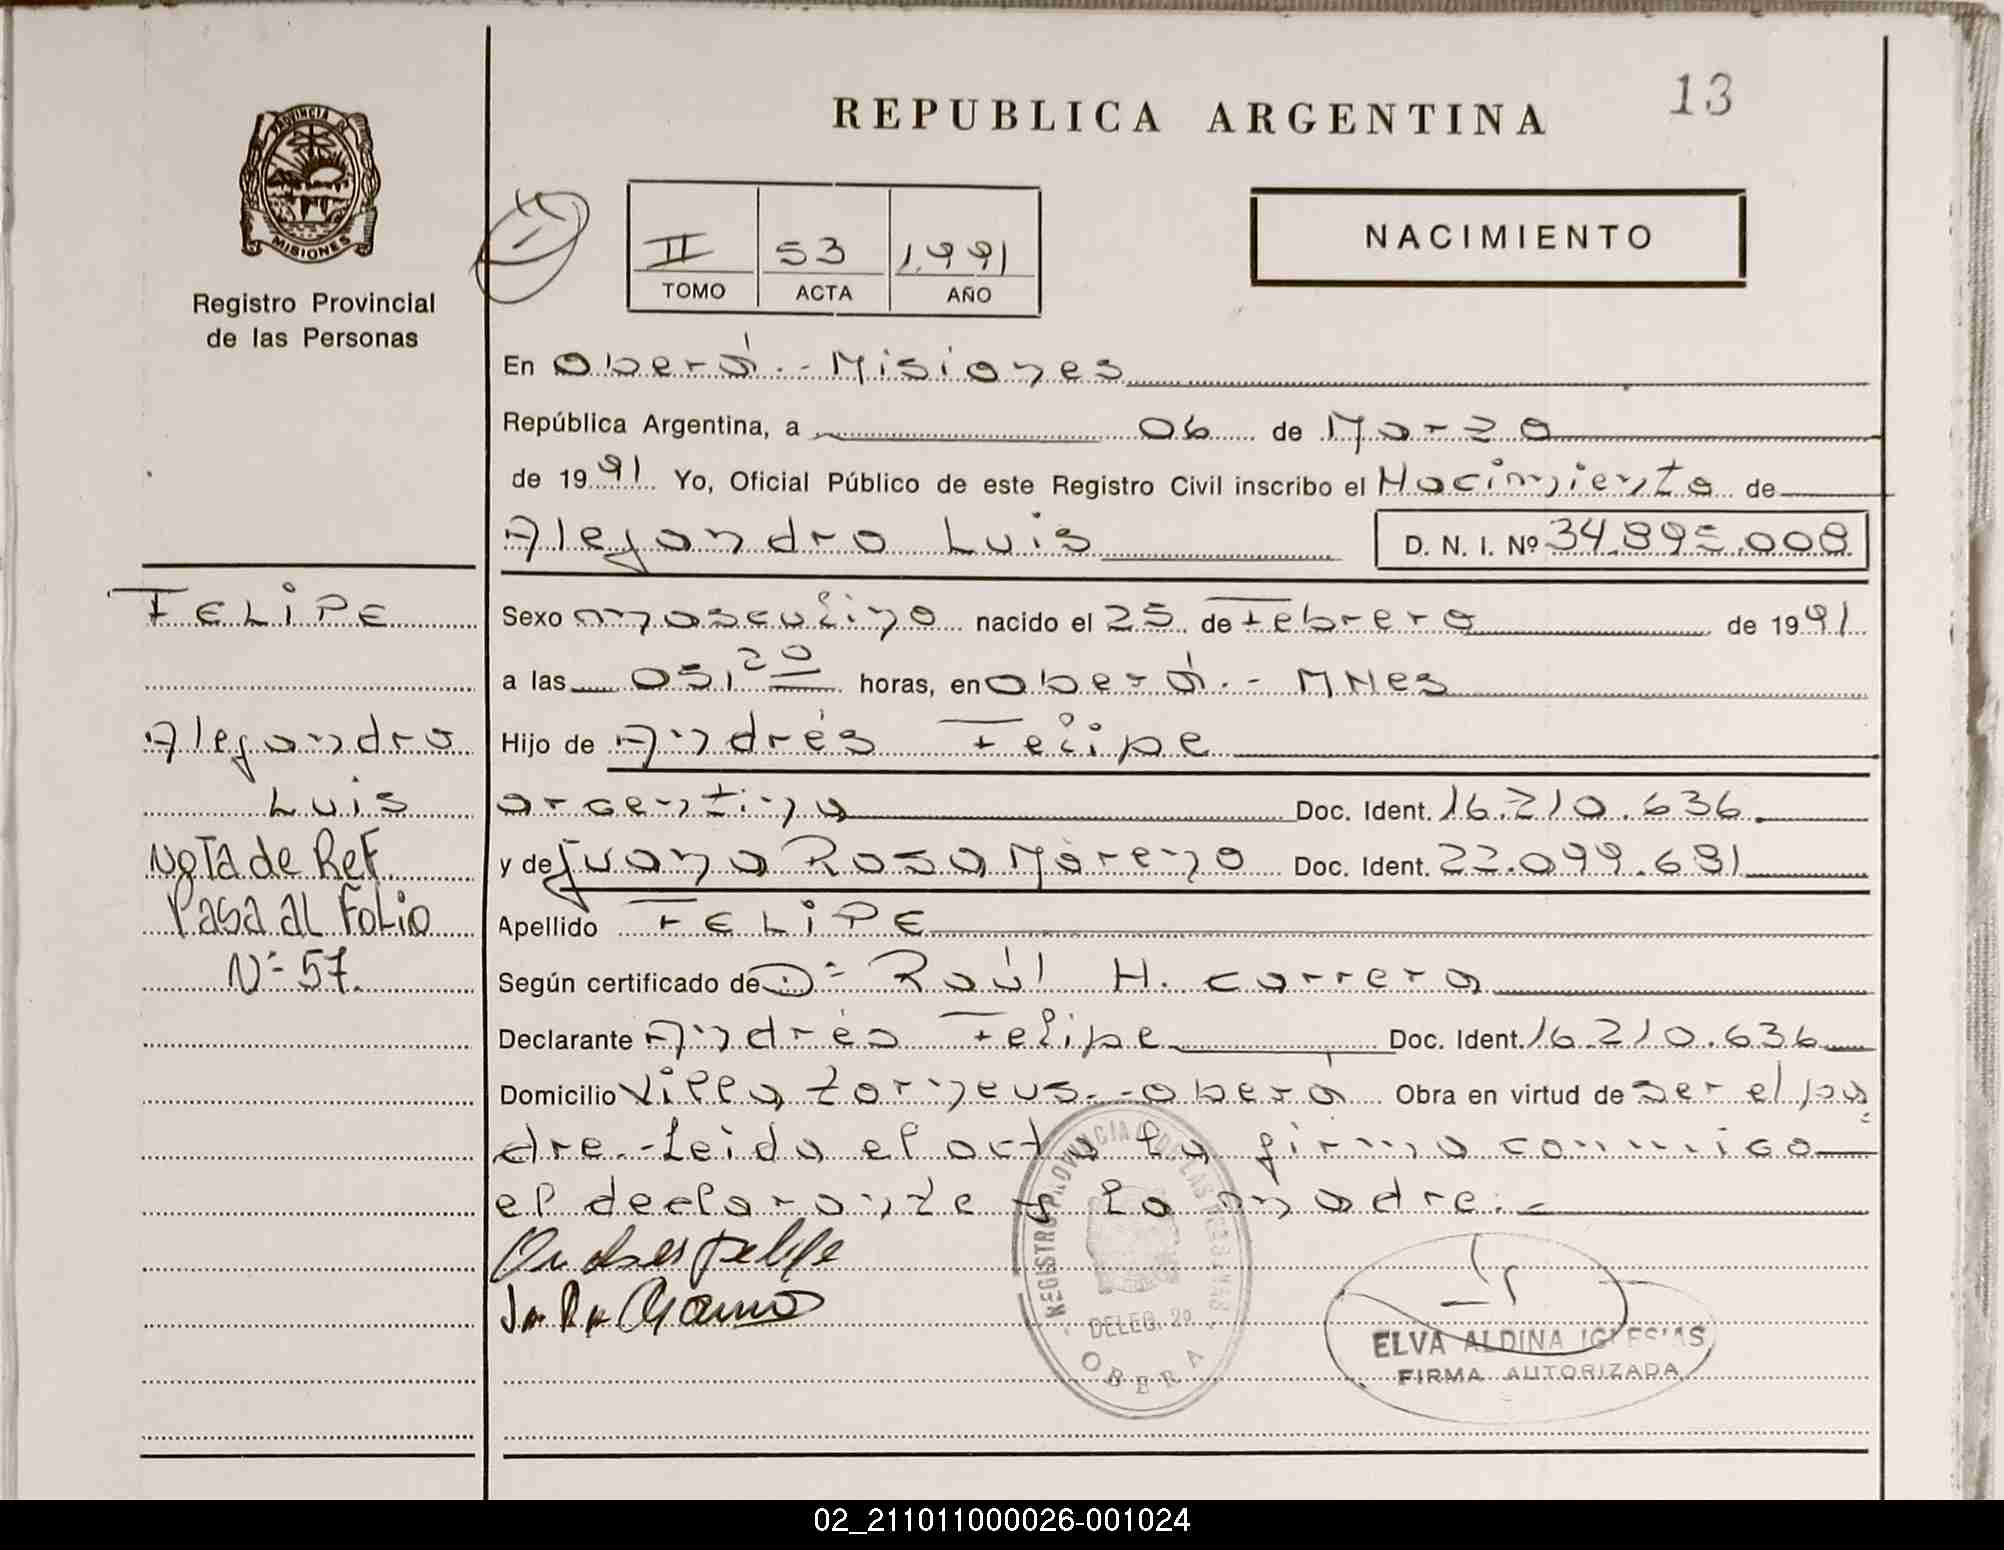 13
REPUBLICA ARGENTINA
PROVINCIA DE
MISIONES
Registro Provincial
de las Personas
II 53 1.991
TOMO ACTA AÑO
NACIMIENTO
En Oberá.- Misiones
República Argentina, a 06 de Marzo
de 1991 Yo, Oficial Público de este Registro Civil inscribo el Nacimiento de
Alejandro Luis D. N. I. Nº 34.895.008
FELIPE
Sexo masculino nacido el 25 de Febrero de 1991
a las 05,20 horas, en Oberá.- MNes
Alejandro
Hijo de Andrés Felipe
Luis
argentino Doc. Ident. 16.210.636
Nota de Ref.
y de Juana Rosa Moreno Doc. Ident. 22.099.681
Pasa al Folio
Apellido FELIPE
Nº 57.
Según certificado de Dº Raúl H. Carrera
Declarante Andrés Felipe Doc. Ident. 16.210.636
Domicilio Villa Oberá Obra en virtud de ser el pa
dre.-Leida el acta la firma conmigo
el declarante y la madre.-
REGISTRO PROVINCIAL DE LAS PERSONAS
DELEG. 2º
OBERA
ELVA ALDINA IGLESIAS
FIRMA AUTORIZADA
02_211011000026-001024